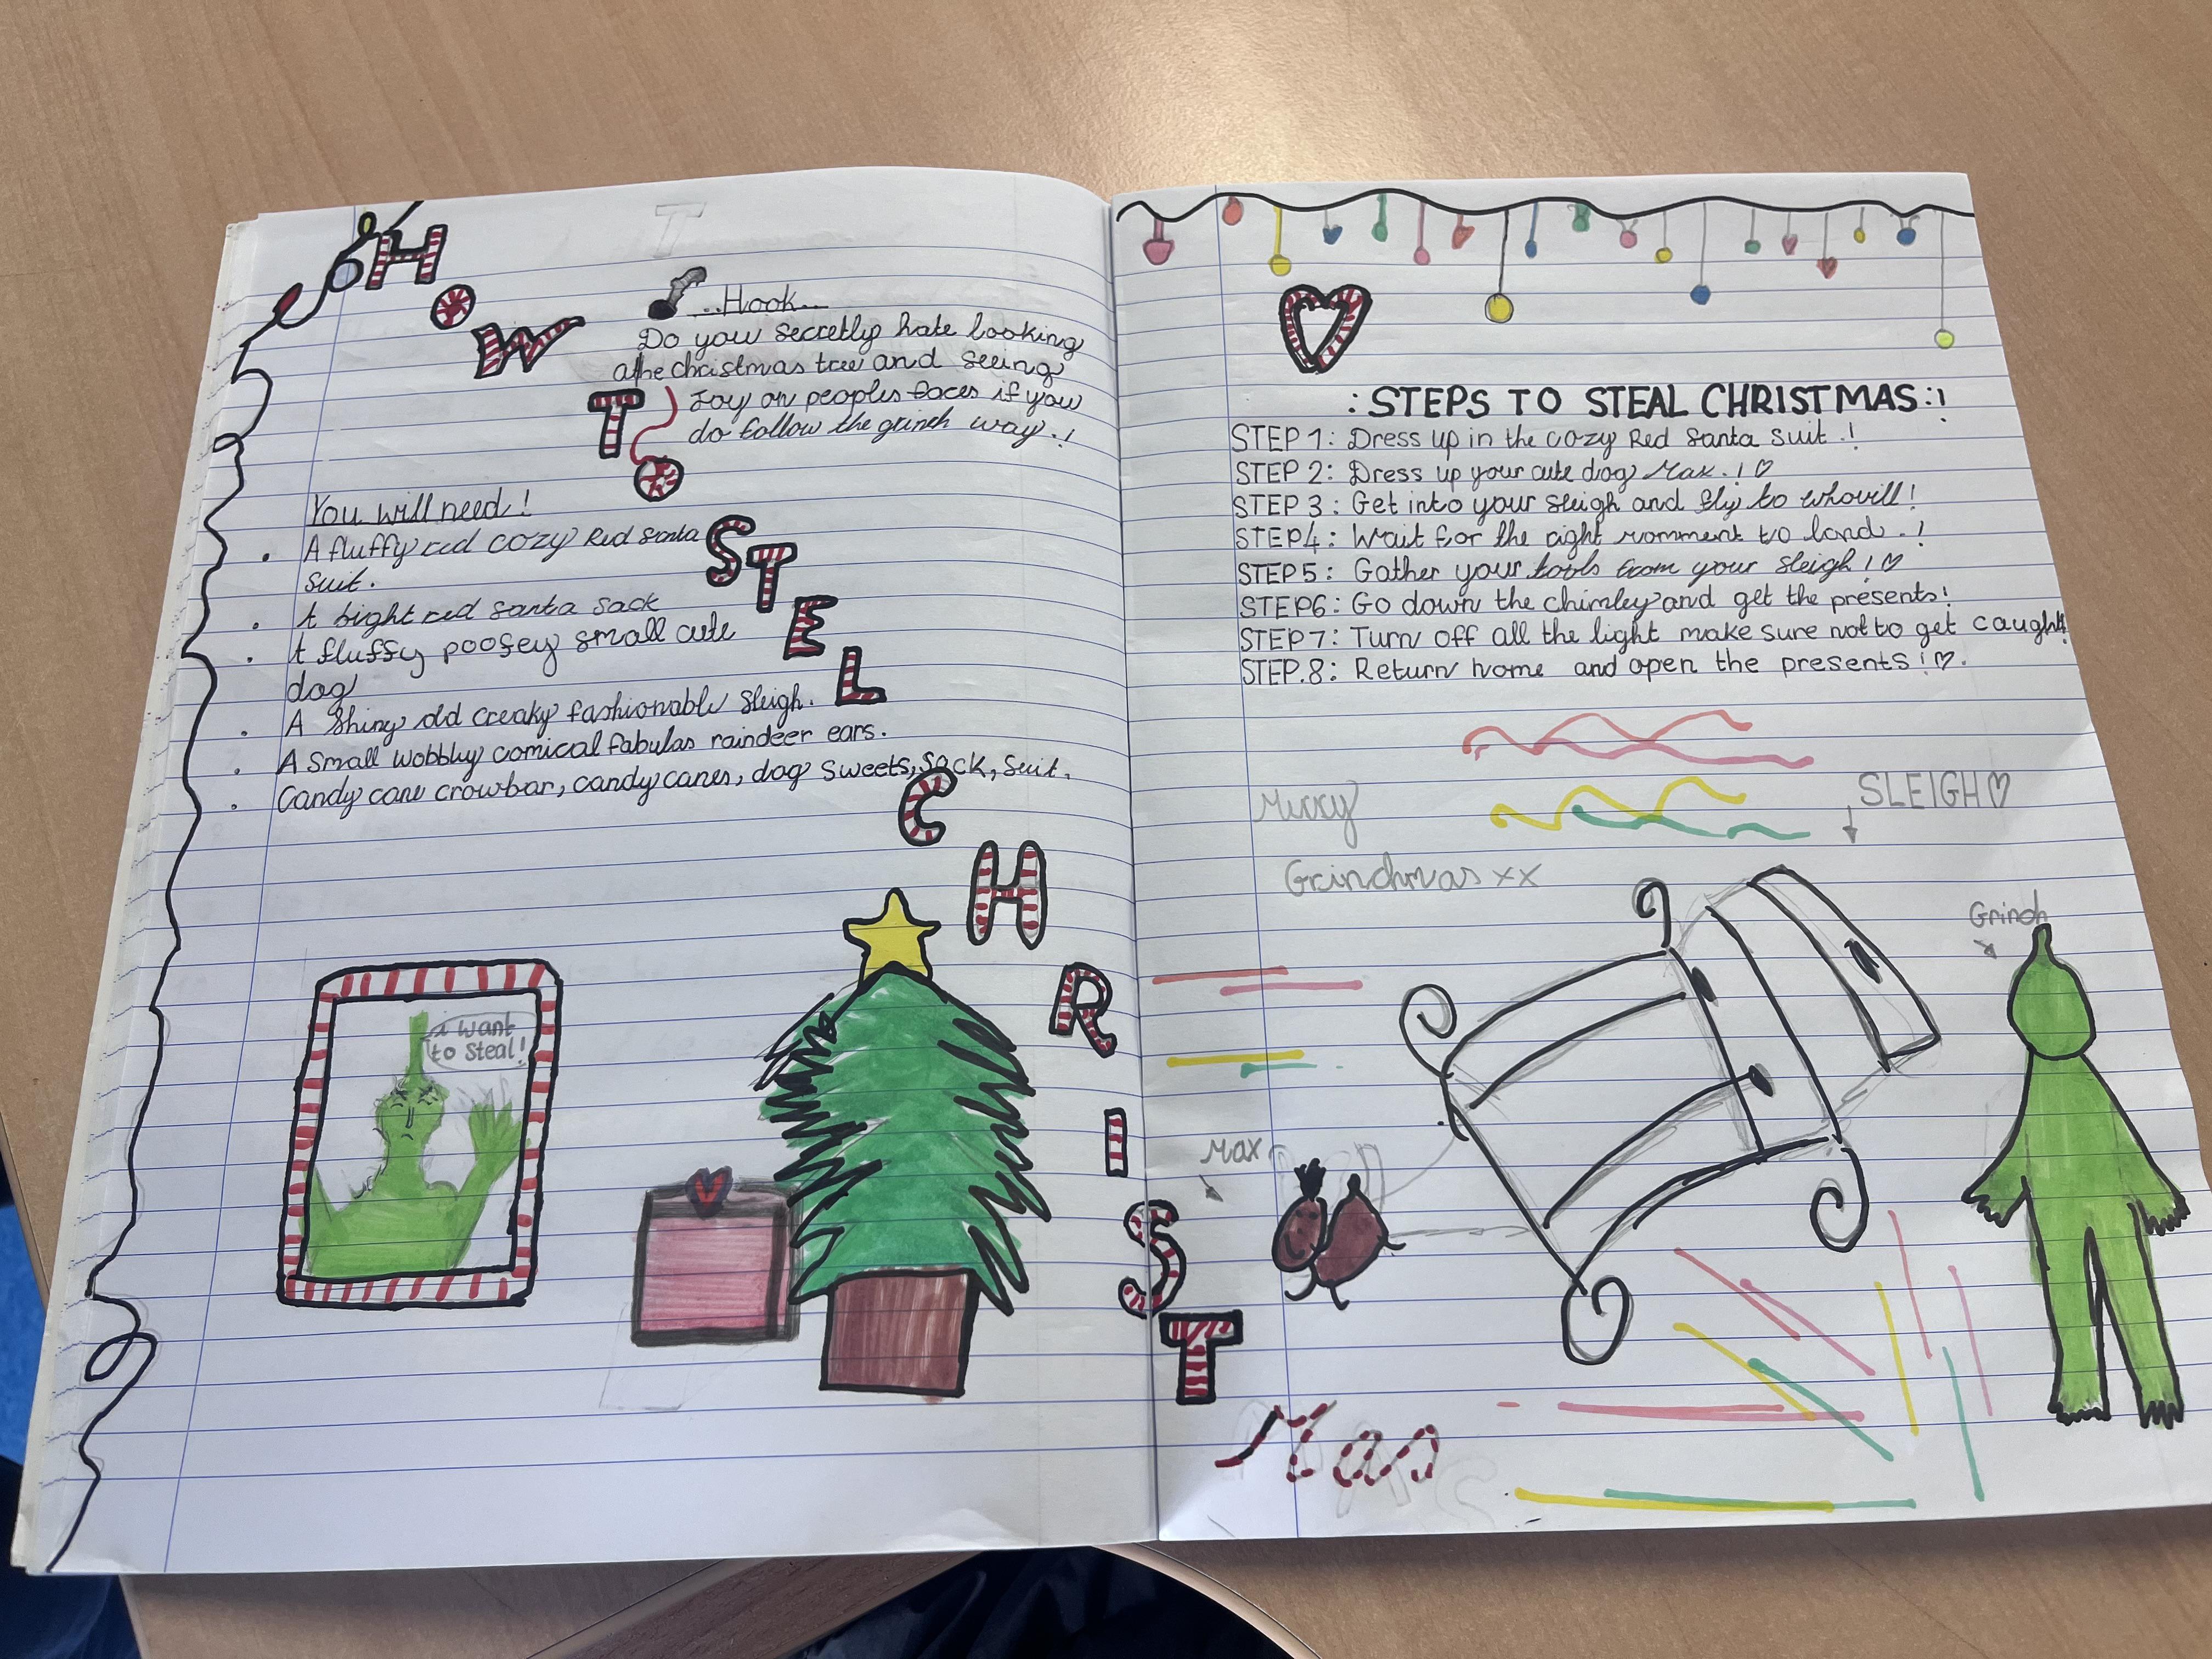 HOW
TO
STEL
CHRIST
Mas
..Hook...
Do you secretly hate looking
at the christmas tree and seeing
Joy on peoples faces if you
do follow the grinch way.!
You will need!
A fluffy red cozy Red Santa
suit.
A bight red santa sack
A fluffy poofey small cute
dog
A Shiny old creaky fashionable sleigh.
A small wobbly comical fabulas raindeer ears.
Candy cane crowbar, candy canes, dog sweets, sack, suit.
i want
to steal!
:STEPS TO STEAL CHRISTMAS:!
STEP 1: Dress up in the cozy Red Santa suit.!
STEP 2: Dress up your cute dog Max.!♡
STEP 3: Get into your sleigh and fly to whovill!
STEP4: Wait for the right momment to land.!
STEP5: Gather your tools from your sleigh!♡
STEP6: Go down the chimley and get the presents!
STEP7: Turn off all the light make sure not to get caught!
STEP.8: Return home and open the presents!♡.
Merry
Grinchmas xx
SLEIGH♡
Grinch
Max